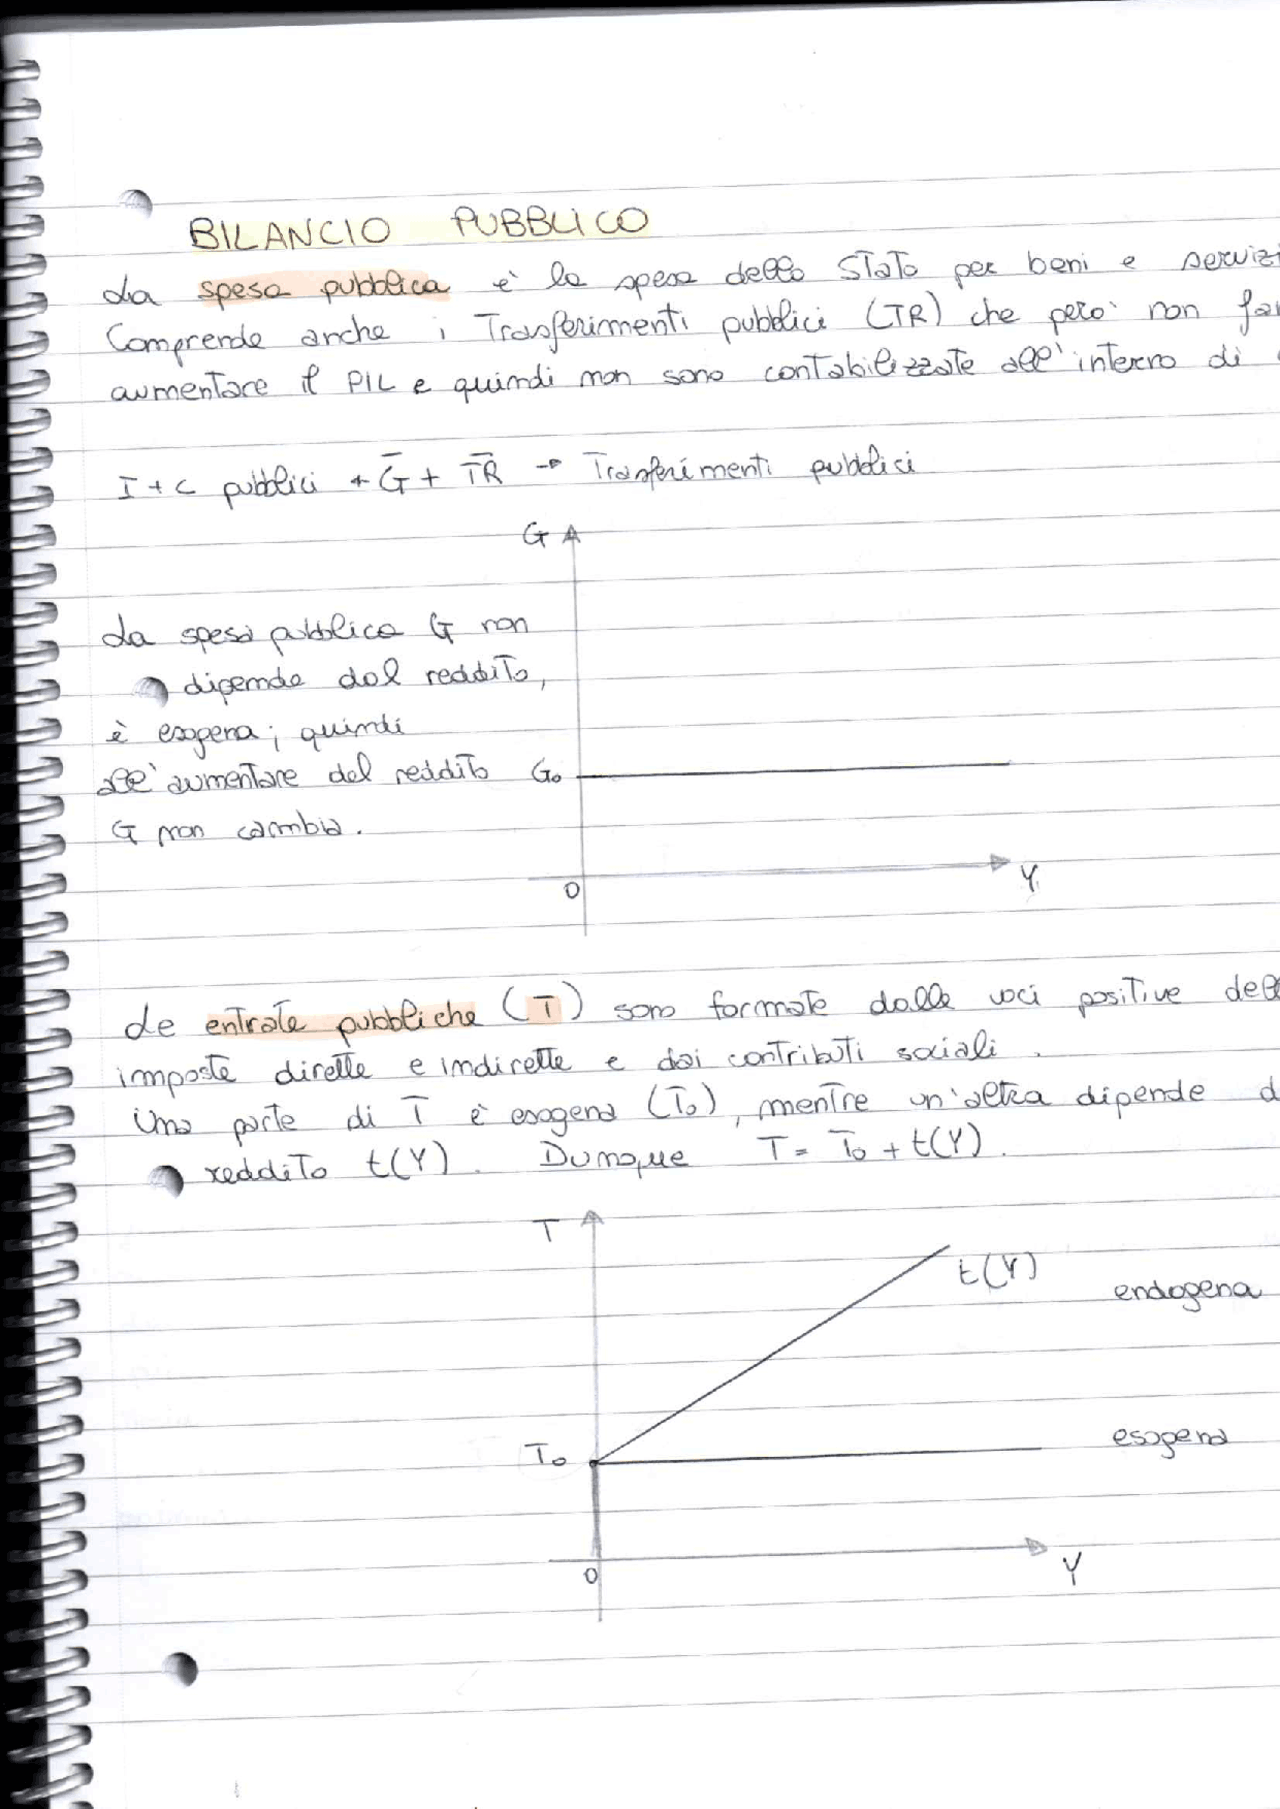 BILANCIO PUBBLICO
La spesa pubblica è la spesa dello Stato per beni e servizi
Comprende anche i Trasferimenti pubblici (TR) che però non fa
aumentare il PIL e quindi non sono contabilizzate all'interno di
I + C pubblici + G̅ + T̅R̅ → Trasferimenti pubblici
G
La spesa pubblica G non
dipende dal reddito,
è esogena; quindi
all'aumentare del reddito G₀
G non cambia.
0 Y
Le entrate pubbliche (T) sono formate dalle voci positive dell
imposte dirette e indirette e dai contributi sociali.
Una parte di T è esogena (T̅₀), mentre un'altra dipende d
reddito t(Y). Dunque T = T̅₀ + t(Y).
T
t(Y) endogena
T₀ esogena
0 Y